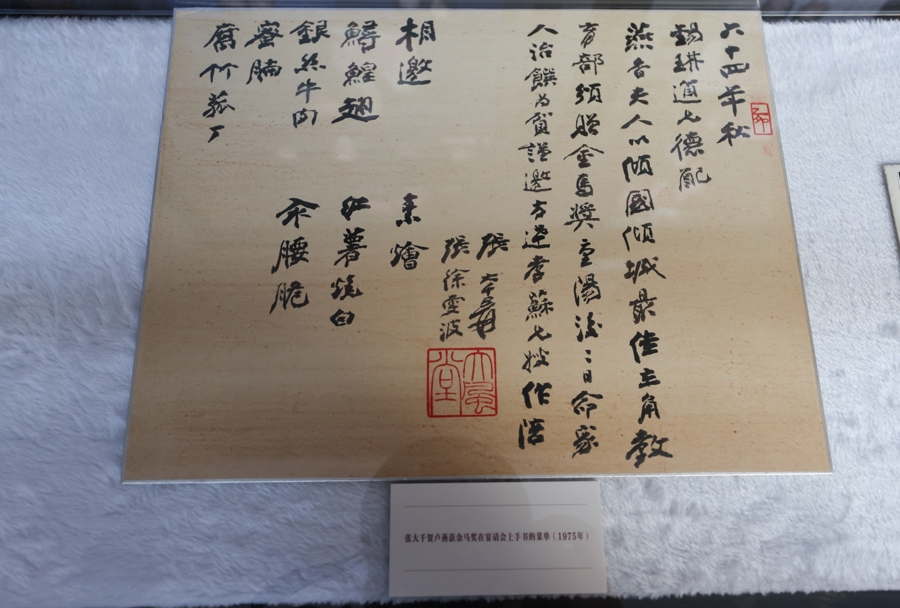 六十四年秋
錫珙道兄德配
燕香夫人以傾國傾城最佳主角教
育部頒贈金馬獎重陽後二日命家
人治饌为賀謹邀方逵李蘇兄嫂作陪
張大千
張徐雯波
大風堂
相邀
鱘鰉翅
銀絲牛肉
蜜腩
腐竹菰丁
素燴
紅薯燒白
汆腰脆
张大千贺卢燕获金马奖在宴请会上手书的菜单（1975年）